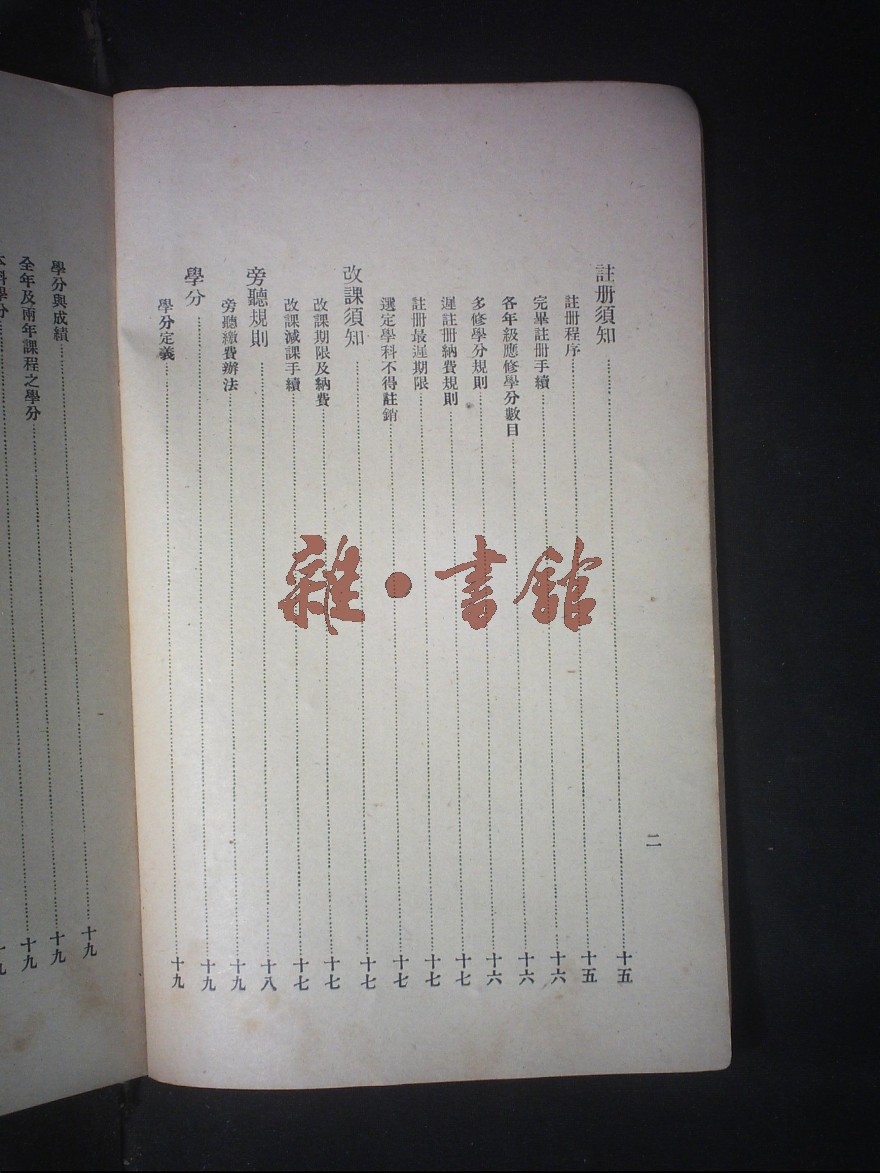 二
註册須知……十五
註册程序……十五
完畢註册手續……十六
各年級應修學分數目……十六
多修學分規則……十六
遲註册納費規則……十七
註册最遲期限……十七
選定學科不得註銷……十七
改課須知……十七
改課期限及納費……十七
改課減課手續……十七
旁聽規則……十八
旁聽繳費辦法……十九
學分……十九
學分定義……十九
學分與成績……十九
全年及兩年課程之學分……十九
本科學分……十九
雜•書館